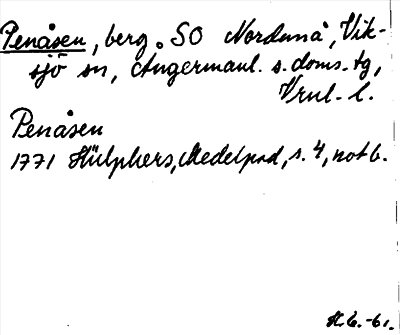 Penåsen, berg. SO Nordanå, Vik-
sjö sn, Ångermanl. s. doms. tg,
Vrnl. l.
Penåsen
1771 Hülphers, Medelpad, s. 4, not b.
H.G. -61.